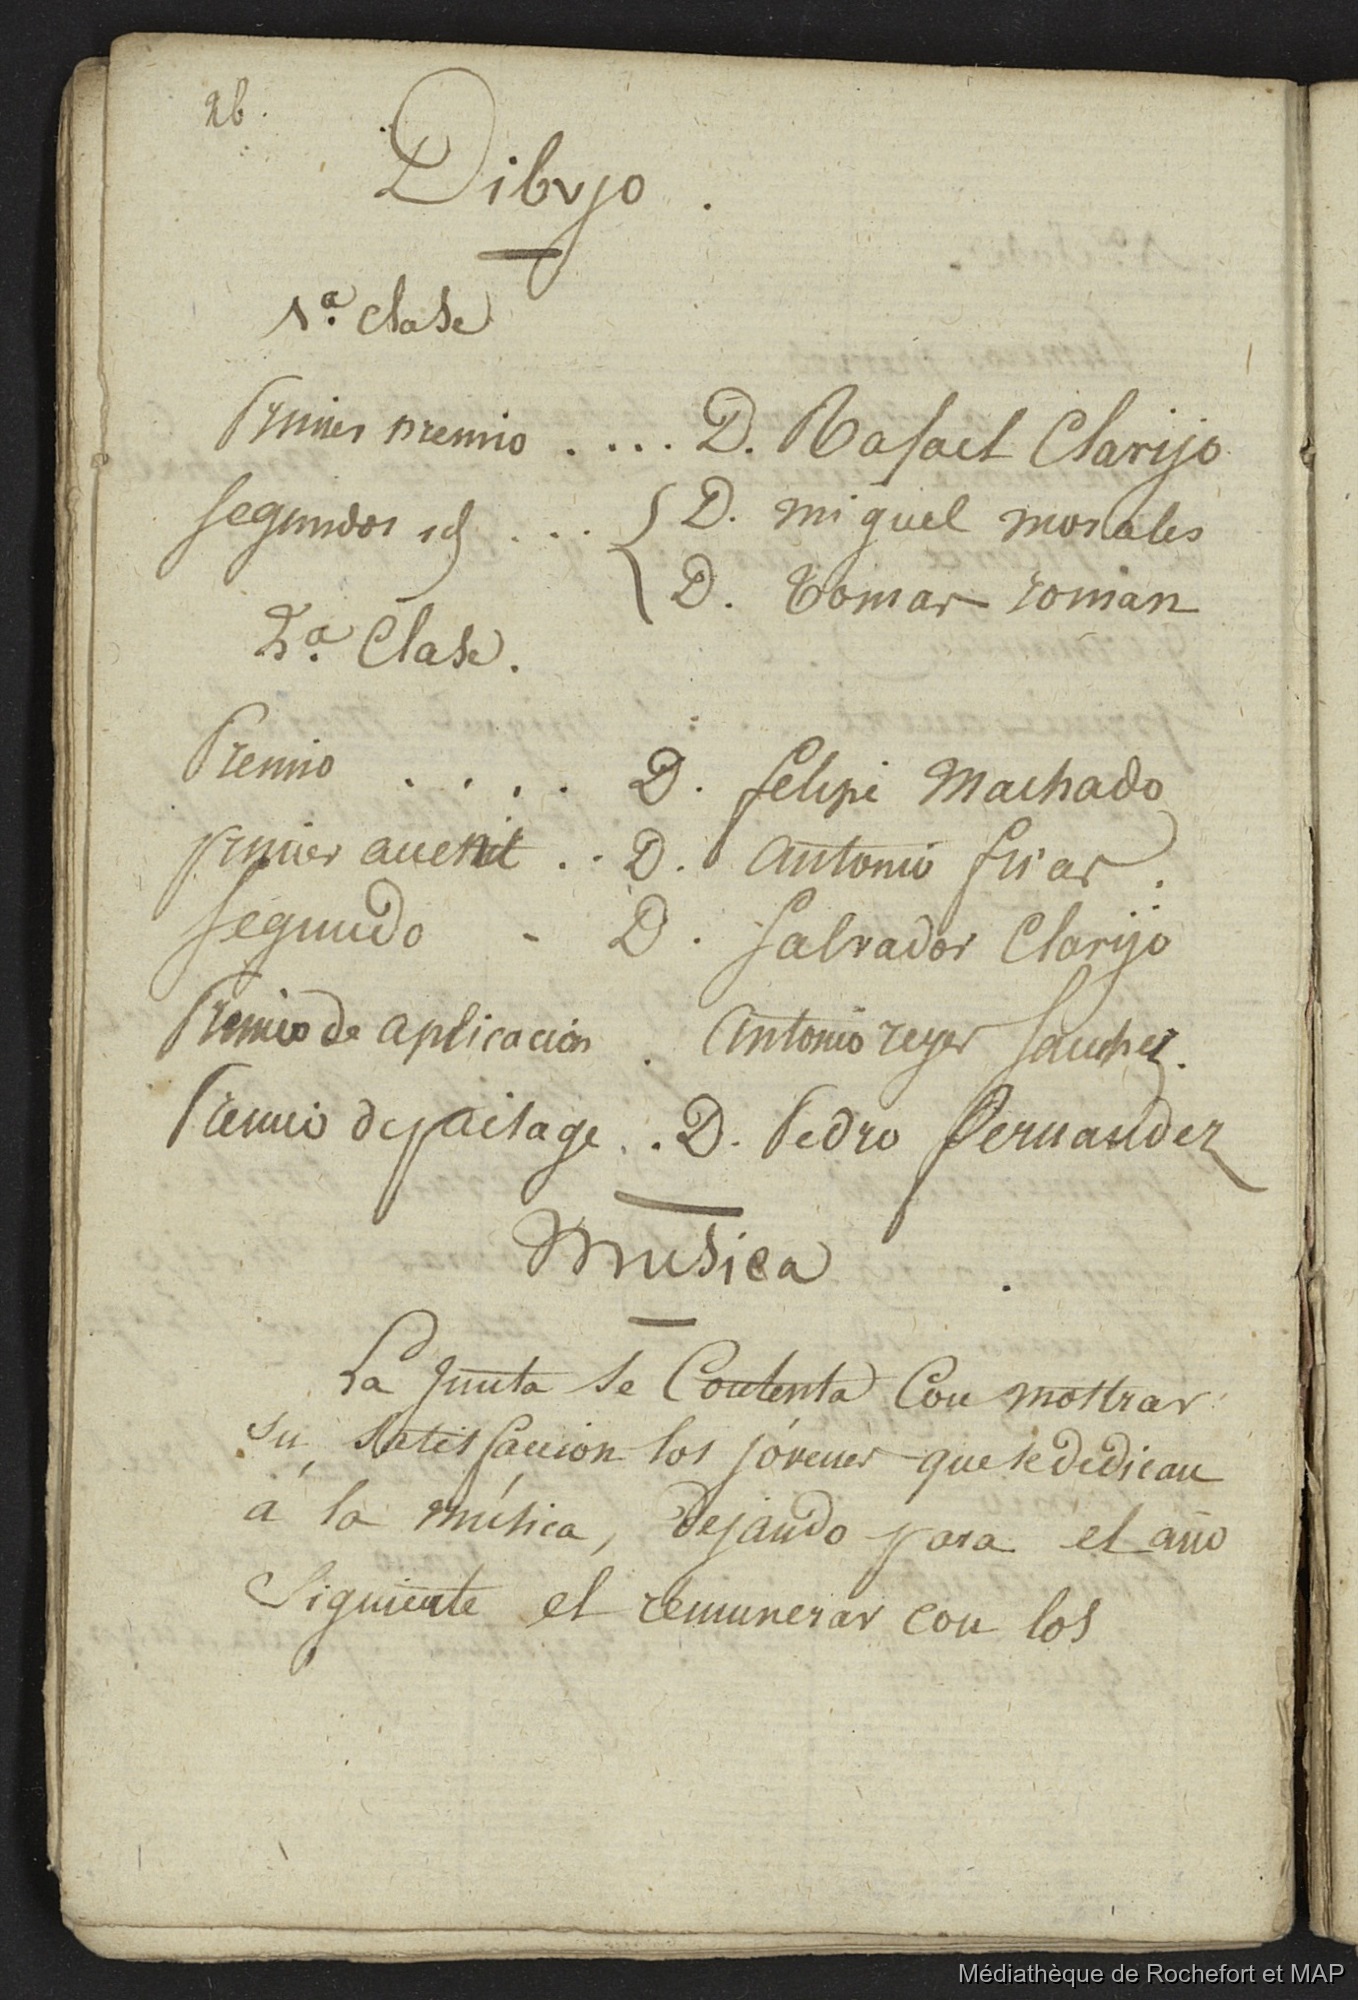 26.
Dibujo.
1.ª clase
Primer premio .... D. Rafael Clarijo
segundos id ... D. miguel morales
D. tomas roman
2.ª Clase.
Premio .... D. felipe Machado
primer accesit .. D. antonio frias.
segundo - D. salvador Clarijo
Premio de aplicacion . antonio reyes sanchez.
Premio de paisage .. D. Pedro Fernandez
Musica
La junta se Contenta Con mostrar
su satisfaccion los jóvenes que se dedican
á la música, dejando para el año
siguiente el remunerar con los
Médiathèque de Rochefort et MAP